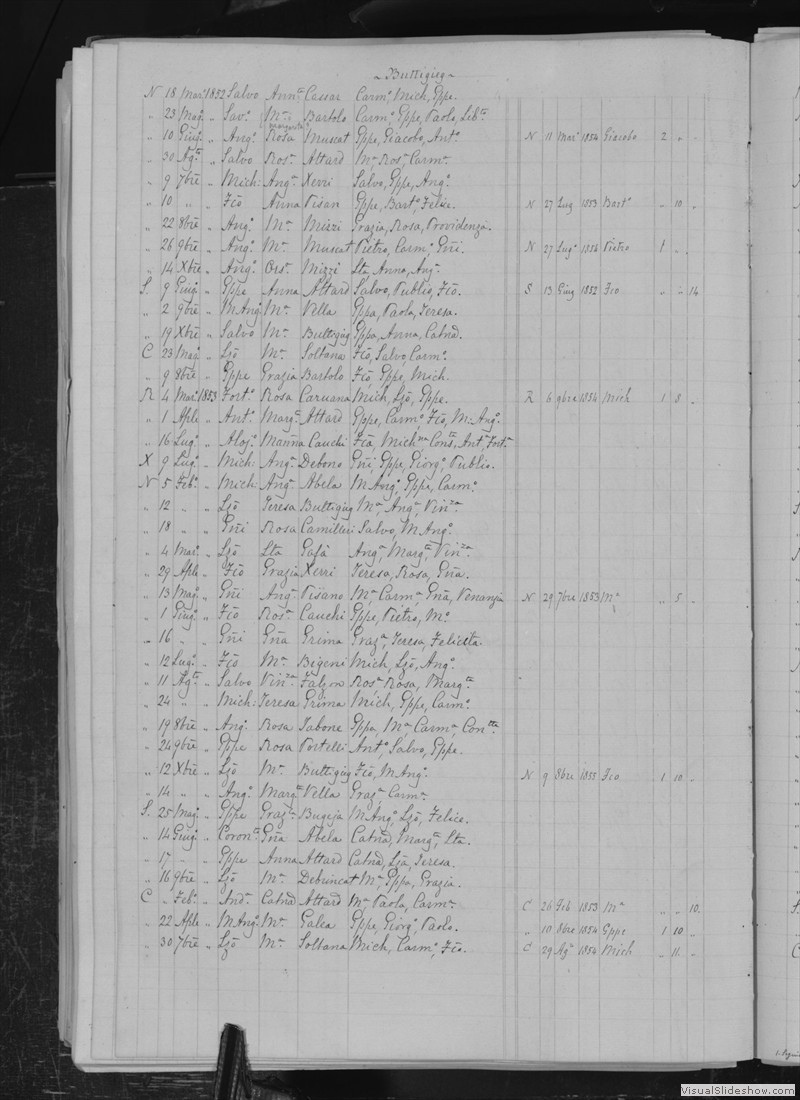 ~ Buttigieg ~
N 18 Mar: 1852 Salvo Annta Cassar Carmo, Mich, Gppe.
" 23 Mago " Savo Ma Bartolo Carmo, Gppe, Paolo, Libta
" 10 Giugo " Ango Rosa Muscat Gppe, Giacobo, Anto. N 11 Maro 1854 Giacobo 2 " "
" 30 Agto " Salvo Rosa Attard Ma Rosa Carma
" 9 7bre " Mich: Anga Xerri Salvo, Gppe, Ango.
" 10 " " Fco Anna Pisan Gppe, Barto, Felice. N 27 Lug 1853 Barto " 10 "
" 22 8bre " Ango Ma Mizzi Grazia, Rosa, Providenza.
" 26 9bre " Ango Ma Muscat Pietro, Carmo, Gni. N 27 Lugo 1854 Pietro 1 " "
" 14 Xbre " Ango Orsa Mizzi Lta, Anna, Ang.
S. 9 Giug " Gppe Anna Attard Salvo, Publio, Fco. S 13 Giug 1852 Fco " " 14
" 2 9bre " M Ango Ma Vella Gppa, Paola, Teresa.
" 19 Xbre " Salvo Ma Buttigieg Gppa, Anna, Catna.
C 23 Mago " Lzo Ma Soltana Fco, Salvo Carmo.
" 9 8bre " Gppe Grazia Bartolo Fco, Gppe, Mich.
R 4 Maro 1853 Forto Rosa Caruana Mich, Lzo, Gppe. R 6 9bre 1854 Mich 1 8 "
" 1 Aple " Anto Marga Attard Gppe, Carmo Fco, M: Ango.
" 16 Lugo " Alojo Marina Cauchi Fca, Michna Consa, Anta Forta
X 9 Lugo " Mich: Anga Debono Gni, Gppe, Giorgo, Publio.
N 5 Febo " Mich: Anga Abela M Ango, Gppe, Carmo.
" 12 " " Lzo Teresa Buttigieg Ma, Anga, Vinza
" 18 " " Gni Rosa Camilleri Salvo, M Ango.
" 4 Maro " Lzo Lta Gafà Anga, Margta, Vinza
" 29 Aple " Fco Grazia Xerri Teresa, Rosa, Gna.
" 13 Mago " Gni Anga Pisano Ma, Carma, Gna, Venanzia N 29 7bre 1853 Ma " 5 "
" 1 Giugo " Fco Rosa Cauchi Gppe, Pietro, Mo
" 16 " " Gni Gna Grima Graza, Teresa, Felicita.
" 12 Lugo " Fco Ma Bigeni Mich, Lzo, Ango.
" 11 Agto " Salvo Vinza Falzon Rosa Rosa, Margta
" 24 " " Mich: Teresa Grima Mich, Gppe, Carmo.
" 19 8bre " Ango Rosa Tabone Gppa, Ma Carma, Contta.
" 24 9bre " Gppe Rosa Portelli Anto, Salvo, Gppe.
" 12 Xbre " Lzo Ma Buttigieg Fco, M Ango. N 9 8bre 1855 Fco 1 10 "
" 14 " " Ango Marga Vella Graza Carma
S. 25 Mago " Gppe Graza Bugeja M Ango, Lzo, Felice.
" 14 Giugo " Corono Gna Abela Catna, Marga, Lta.
" 17 " " Gppe Anna Attard Catna, Lza, Teresa.
" 16 9bre " Lzo Ma Debrincat Ma, Gppa, Grazia.
C " Febo " Anda Catna Attard Ma Paola, Carma C 26 Feb 1853 Ma " " 10.
" 22 Aple " M Ango Ma Galea Gppe, Giorgo, Paolo. " 10 8bre 1854 Gppe 1 10 "
" 30 7bre " Lzo Ma Soltana Mich, Carmo, Fco. C 29 Ago 1854 Mich " 11 "
VisualSlideshow.com